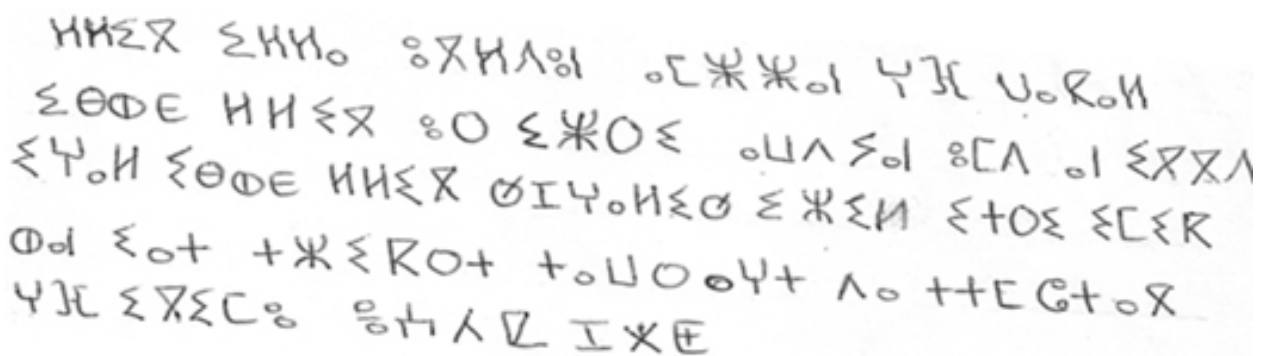 ⵍⵍⵉⴳ ⵉⵍⵍⴰ ⵓⴳⵍⴷⵓⵏ ⴰⵎⵣⵣⴰⵏ ⵖⴼ ⵡⴰⴽⴰⵍ
ⵉⴱⵀⴹ ⵍⵍⵉⴳ ⵓⵔ ⵉⵣⵔⵉ ⴰⵡⴷ ⵢⴰⵏ ⵓⵎⴷ ⴰⵏ ⵉⴳⴳⴷ
ⵉⵖⴰⵍ ⵉⴱⵀⴹ ⵍⵍⵉⴳ ⵚⵊⵖⴰⵍⵉⵚ ⵉⵣⵉⵍ ⵉⵜⵔⵉ ⵉⵎⵉⴽ
ⵀⴰⵏ ⵉⴰⵜ ⵜⵣⵉⴽⵔⵜ ⵜⴰⵡⵔⴰⵖⵜ ⴷⴰ ⵜⵜⵎⵛⵜⴰⴳ
ⵖⴼ ⵉⴳⵉⵎⵓ ⵓⵄⵃⵇ ⵊⵅⵟ